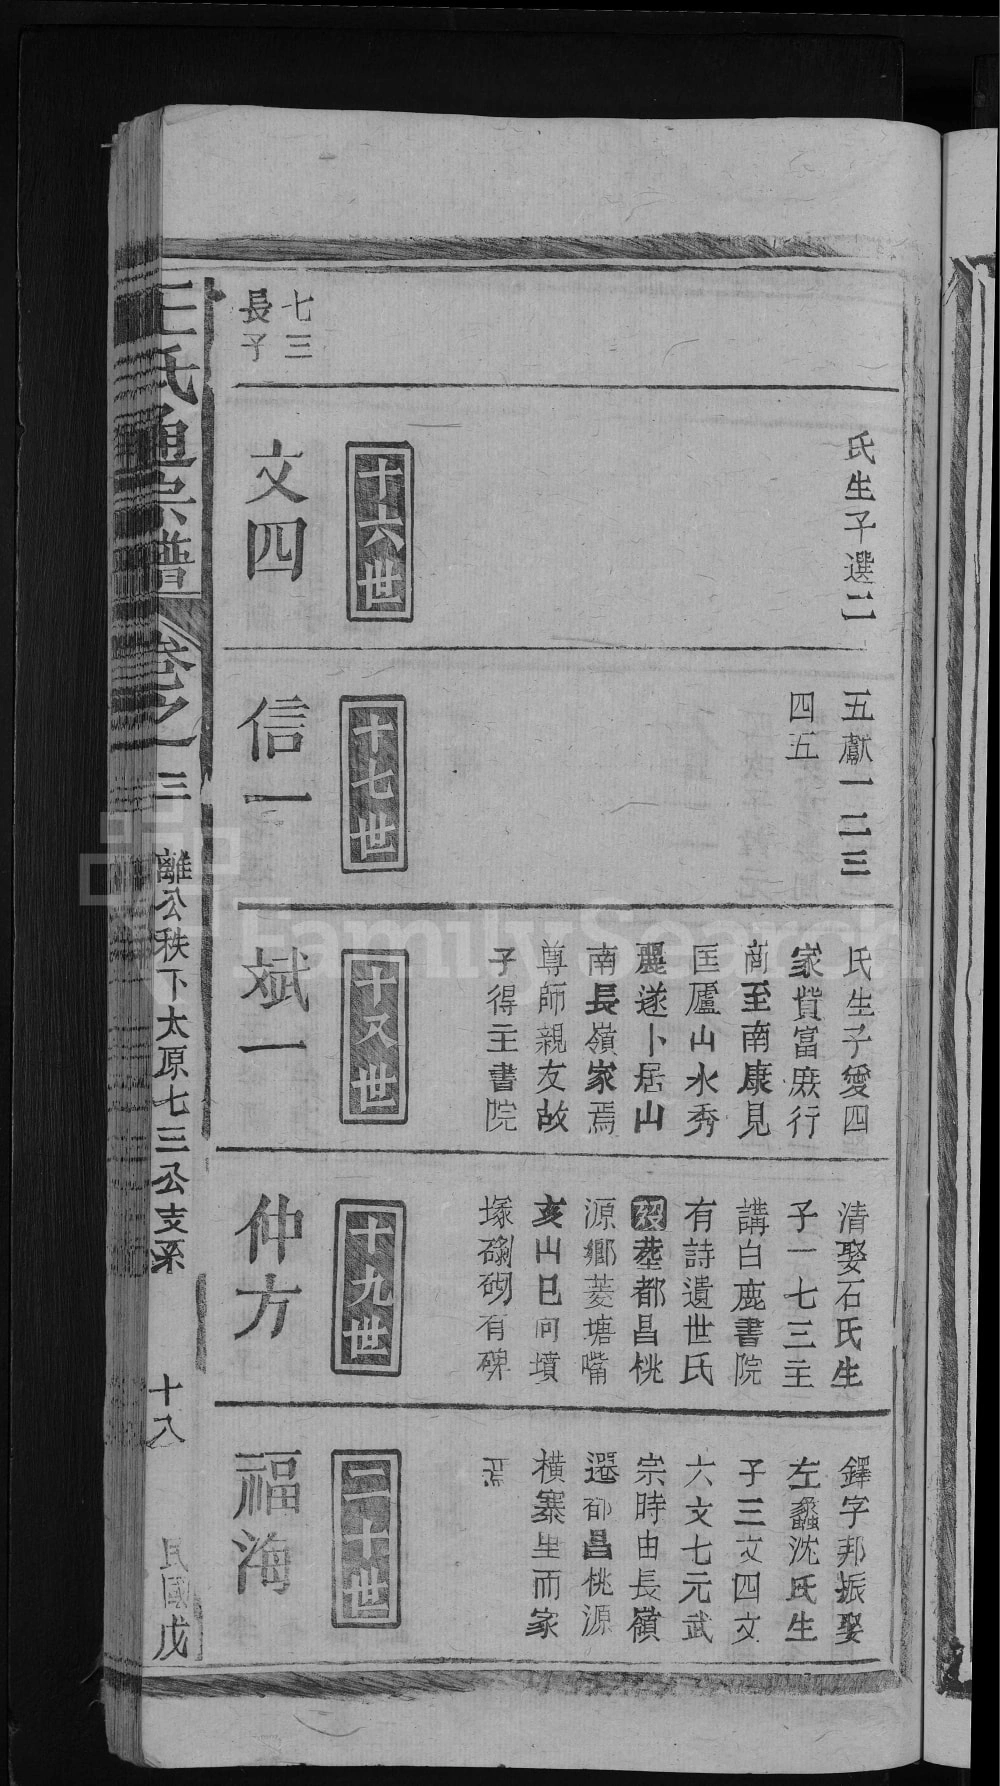 氏生子選二
五獻一二三
四五
氏生子愛四
家貲富庶行
商至南康見
匡廬山水秀
麗遂卜居山
南長嶺家焉
尊師親友故
子得主書院
清娶石氏生
子一七三主
講白鹿書院
有詩遺世氏
歿塟都昌桃
源鄉菱塘嘴
亥山巳向墳
塚磡砌有碑
鐸字邦振娶
左蠡沈氏生
子三文四文
六文七元武
宗時由長嶺
遷都昌桃源
橫寨里而家
焉
七三
長子
十六世
文四
十七世
信一
十又世
斌一
十九世
仲方
二十世
福海
王氏通宗譜
卷之一
三
離公秩下太原七三公支系
十八
民國戊
FamilySearch